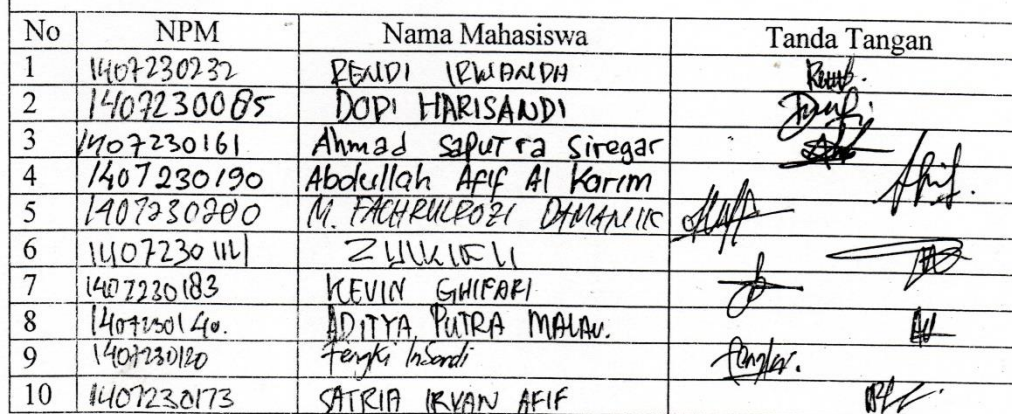 No NPM Nama Mahasiswa Tanda Tangan
1 1407230232 RENDI IRWANDA
2 1407230085 DOPI HARISANDI
3 1407230161 Ahmad Saputra Siregar
4 1407230190 Abdullah Afif Al Karim
5 1407230200 M. FACHRULROZI DAMANIK
6 1407230141 ZULKIFLI
7 1407230183 KEVIN GHIFARI
8 1407230140. ADITYA PUTRA MALAU.
9 1407230120 Fengki Insandi
10 1407230173 SATRIA IRVAN AFIF